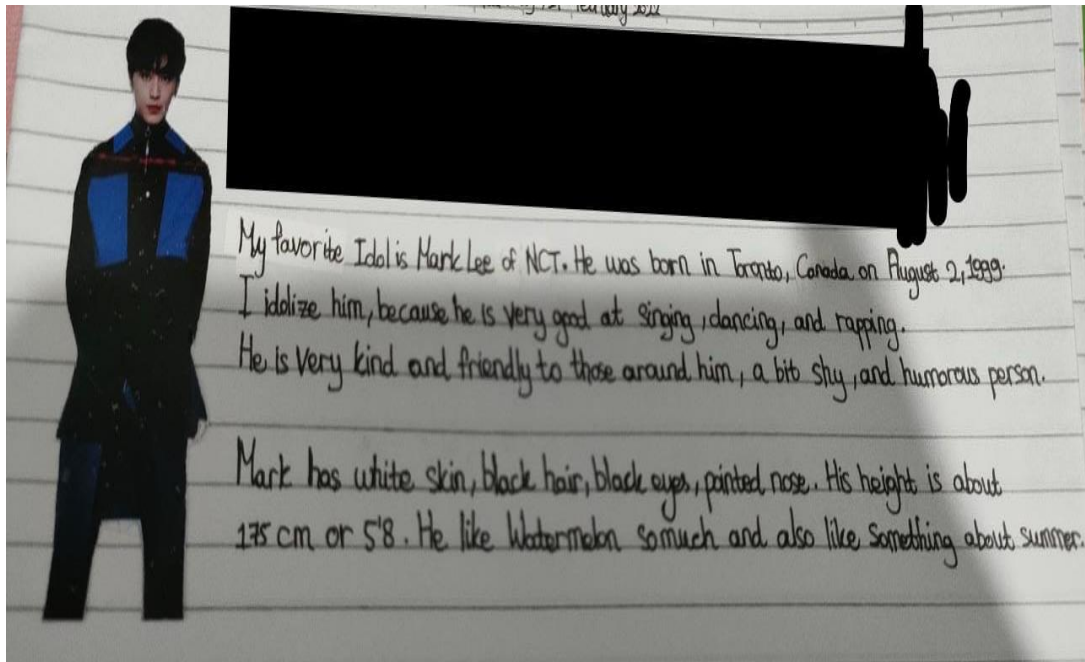 February 2022
My favorite Idol is Mark Lee of NCT. He was born in Toronto, Canada on August 2, 1999.
I idolize him, because he is very good at singing, dancing, and rapping.
He is very kind and friendly to those around him, a bit shy, and humorous person.
Mark has white skin, black hair, black eyes, pointed nose. His height is about
175 cm or 5'8. He like Watermelon somuch and also like Something about summer.